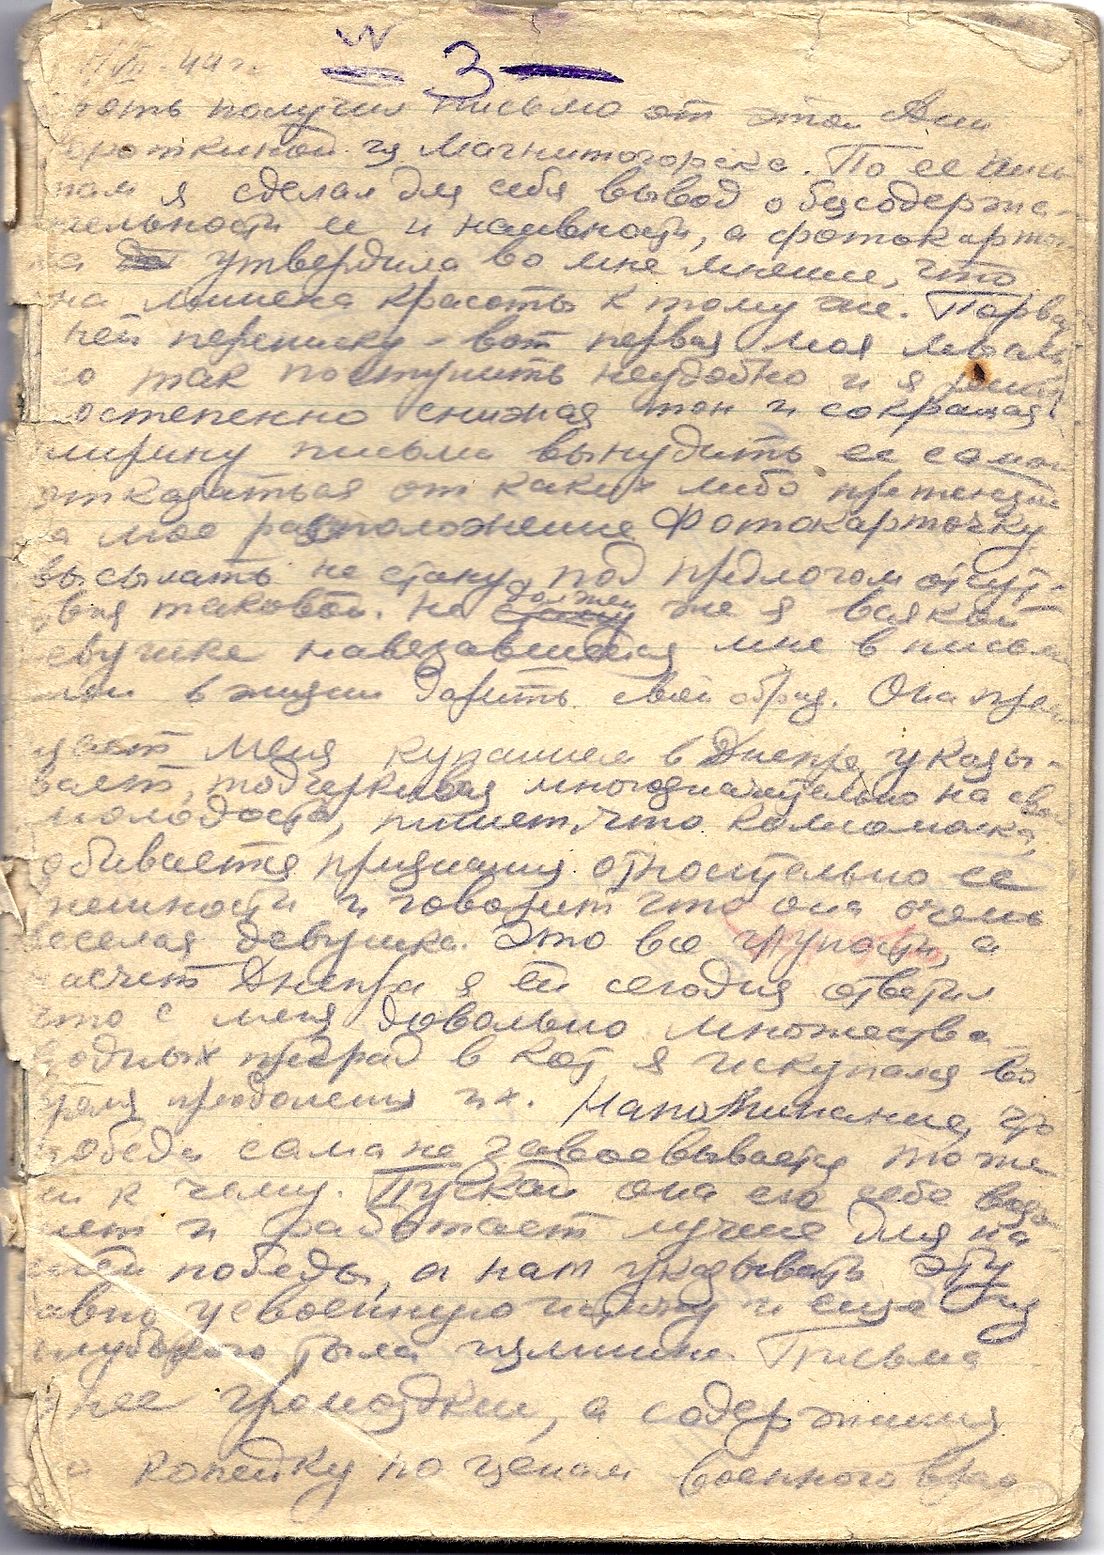 W
3
VII. 44 г.
получил письмо от этой Ани
из Магнитогорска. По ее пись
мам я сделал для себя вывод о бессодержа-
тельности ее и наивности, а фотокарточ
ка утвердила во мне мнение, что
на лишена красоты к тому же. Порва
ней переписку - вот первая моя мысль
но так поступить неудобно и я реши
постепенно снижая тон и сокращая
ширину письма вынудить ее самой
отказаться от каких либо претензий
на мое расположение. Фотокарточку
высылать не стану под предлогом отсут-
ствия таковой. Не должен же я всякой
девушке навезавшейся мне в письма
или в жизни дарить свой образ. Она
меня купанием в Днепре, указы-
вает, подчеркивая многозначительно на свою
молодость, пишет, что комсомолка,
обивается признания относительно ее
внешности и говорит что она очень
веселая девушка. Это все глупости, а
насчет Днепра я ей сегодня ответил
что с меня довольно множества
водных преград в кот. я искупался во
время преодоления их. Напоминание, что
победа сама не завоевывается тоже
ни к чему. Пускай она его себе возь
мет и работает лучше для на
шей победы, а нам указывать эту
давно усвоенную истину и еще из
глубокого тыла излишне. Письма
у нее громоздкие, а содержания
на копейку по ценам военного врем